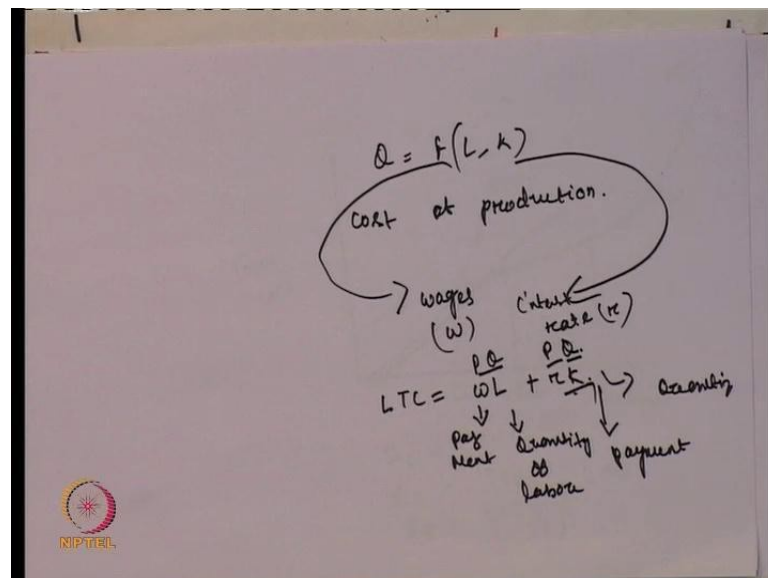 Q = f(L, K)
cost of production.
wages interest
(w) rate (r)
PQ PQ.
LTC = wL + rK. → Quantity
Payment Quantity of labor payment
NPTEL